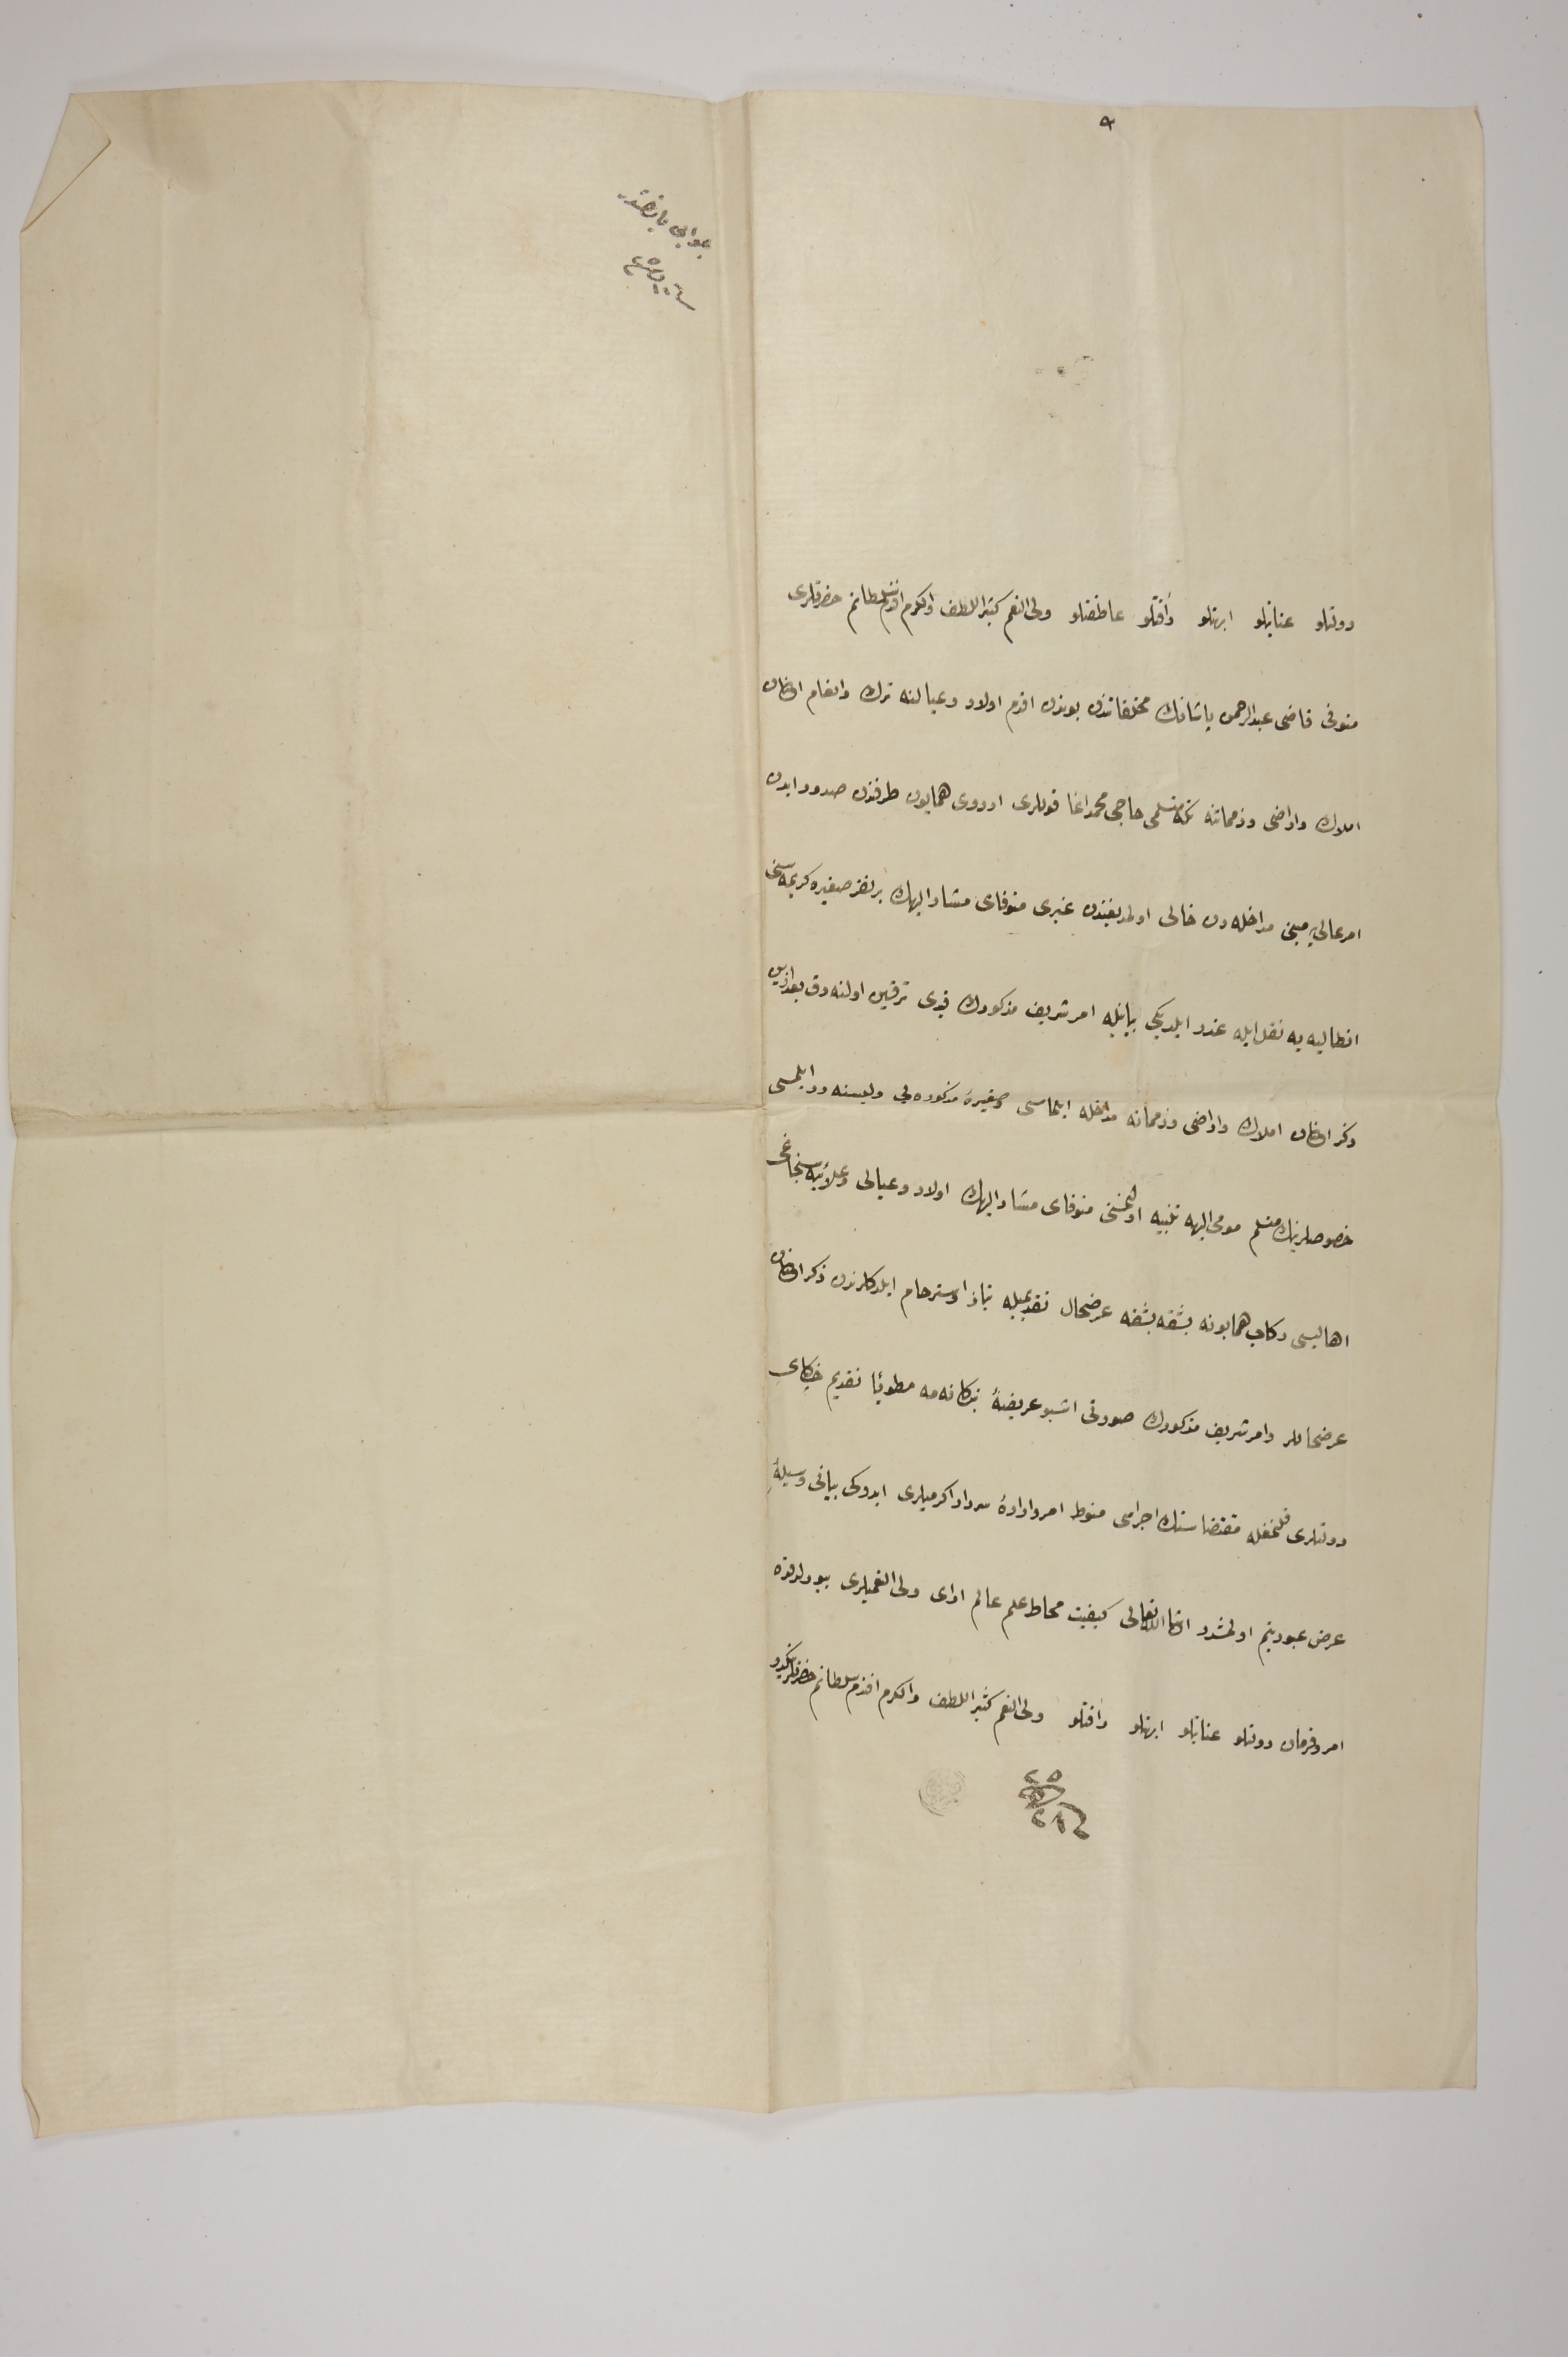 ٩
جوابی یازلمشدر
دولتلو عنایتلو ابهتلو رأفتلو عاطفتلو ولی النعم کثیر اللطف والکرم افندم سلطانم حضرتلری
متوفی قاضی عبدالرحمن پاشانك مخلفاتندن بوندن اقدم اولاد وعیالنه ترك وانعام اولنان
املاك واراضی وزمماتنه تکه متسلمی حاجی محمد اغا قوللری اردوی همایون طرفندن صدور ایدن
امر عالی یه مبنی مداخله دن خالی اولمدیغندن غیری متوفای مشار الیهك بر نفر صغیره کریمه سنی
انطالیه یه نقل ایله غدر ایلدیکی بیانیله امر شریف مذکورك قیدی ترقین اولنه رق بعد ازین
ذکر اولنان املاك واراضی وزمماته مداخله ایلمامسی وصغیرهٔ مذکوره یی ولیسنه رد ایلمسی
خصوصلرینك متسلم مومی الیهه تنبیه اولنمسنی متوفای مشار الیهك اولاد وعیالی وعلائیه سنجاغی
اهالیسی رکاب همایونه بشقه بشقه عرضحال تقدیمیله نیاز واسترحام ایلدکلرندن ذکر اولنان
عرضحاللر وامر شریف مذکورك صورتی اشبو عریضهٔ بندکانه مه مطویًا تقدیم خاکپای
دولتلری قلنمغله مقتضاسنك اجراسی منوط امر وارادهٔ سردار اکرمیلری ایدوکی بیانی وسیلهٔ
عرض عبودیتم اولمشدر ان شا الله تعالی کیفیت محاط علم عالم ارای ولی النعمیلری بیورلدقده
امر وفرمان دولتلو عنایتلو ابهتلو رأفتلو ولی النعم کثیر اللطف والکرم افندم سلطانم حضرتلرینکدر